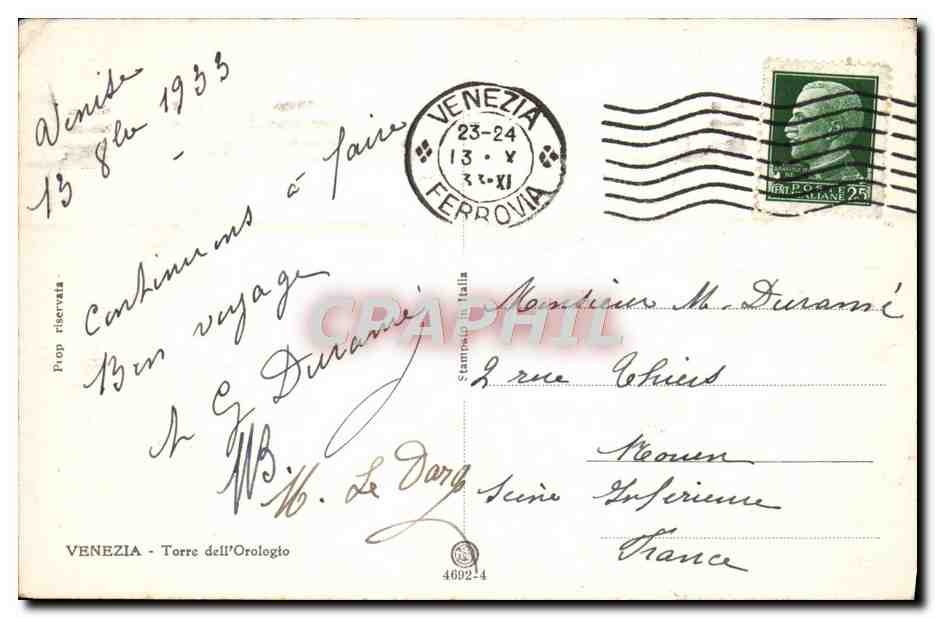 Venise
13 8bre 1933
Continuons à faire
Bon voyage
G Duramé
M. Le Darg
VENEZIA
23-24
13 · X
33·XI
FERROVIA
POSTE
ITALIANE
CENT 25
Prop riservata
Stampato in Italia
CPAPHIL
Monsieur M. Duramé
2 rue Thiers
Rouen
Seine Inférieure
France
VENEZIA - Torre dell'Orologio
4692-4